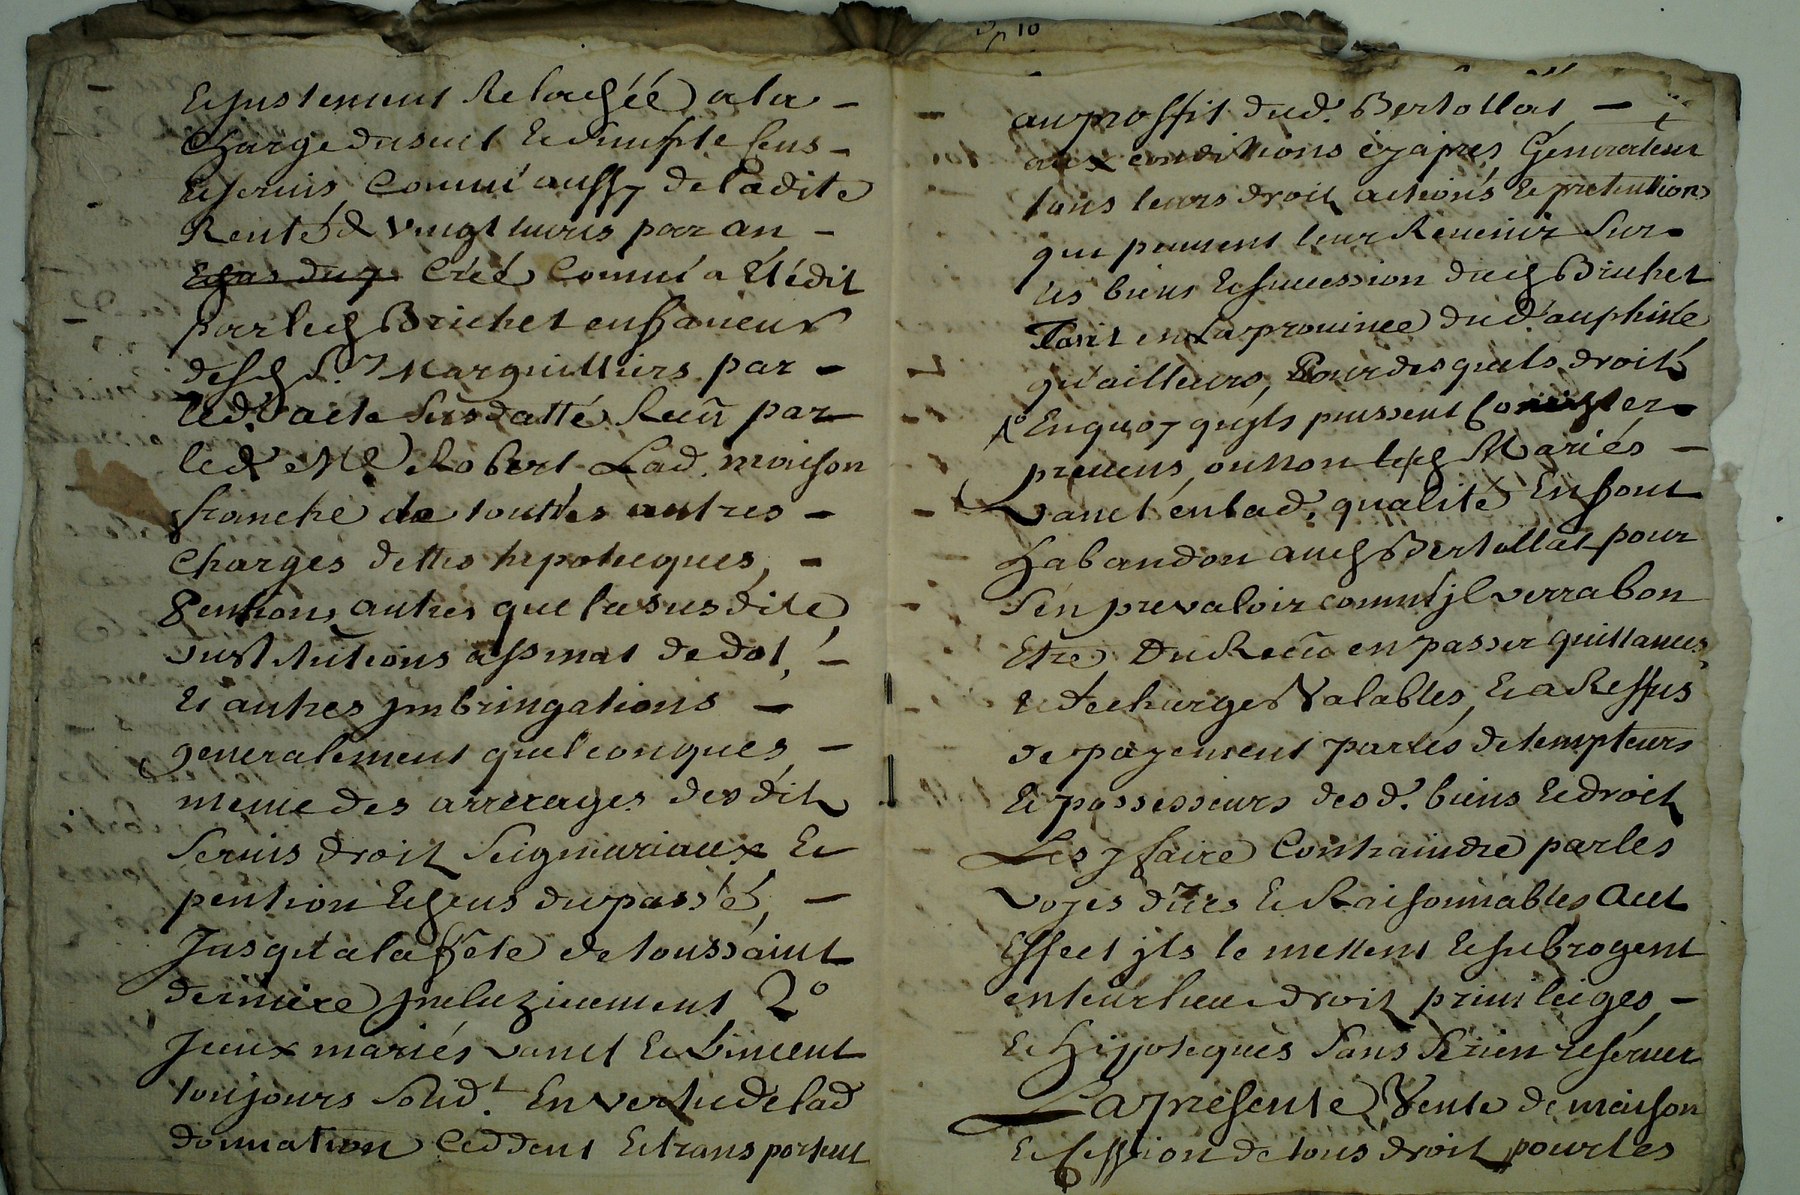 Et justement Relachée a la
Charge du suit et du simple sens
et servis Commé aussy de Ladite
Renté de vingt livres par an
Créé Commé a Eté dit
par led Brichet en faneur
desd Srs Marguilliers par
led. acte susdatté Recû par
led Me Robert Lad. maison
franche de touttes autres
Charges dettes hepotecques,
Pentions, autres que la susdite,
Sustitutions assinat de dot,
Et autres jmbringations
generalement quelconques,
meme des arrerages desdit
Servis droit Seigneuriaux Et
pention Et sens du passé,
Jusqu'à la fête de toussaint
derniere jncluzivement 2o
Jceux mariés vanel Et Vincent
toujours Solidt. En vertu de lad
donnation Ceddent Et transportent
10
au proffit dud. Bertollat
aux conditions cy apres Géneralement
tous leurs droit actions Et pretentions
qui peuvent leur Revenir Sur
les biens Et succession dud Brichet
Soit en La province du d'auphiné
qu'ailleurs, Pour desquels droits
En quoy qu'jls puissent Consister
prevens, ou non lesd Mariés
Vanel en lad. qualité En font
Habandon aud Bertollat pour
s'en prevaloir comme jl verra bon
Etre Du Recû en passer quittances,
et decharges Valables, Et a Reffus
de payement par les detempteurs
Et possesseurs desd. biens Et droit
Les y faire Contraindre par les
voyes dües Et Raisonnables a cet
Effect jls le mettent Et subrogent
en leur lieu droit privileiges,
Et Hippotecques Sans se rien reserver
La presente Vente de maison
Et Cession de tous droit pour les